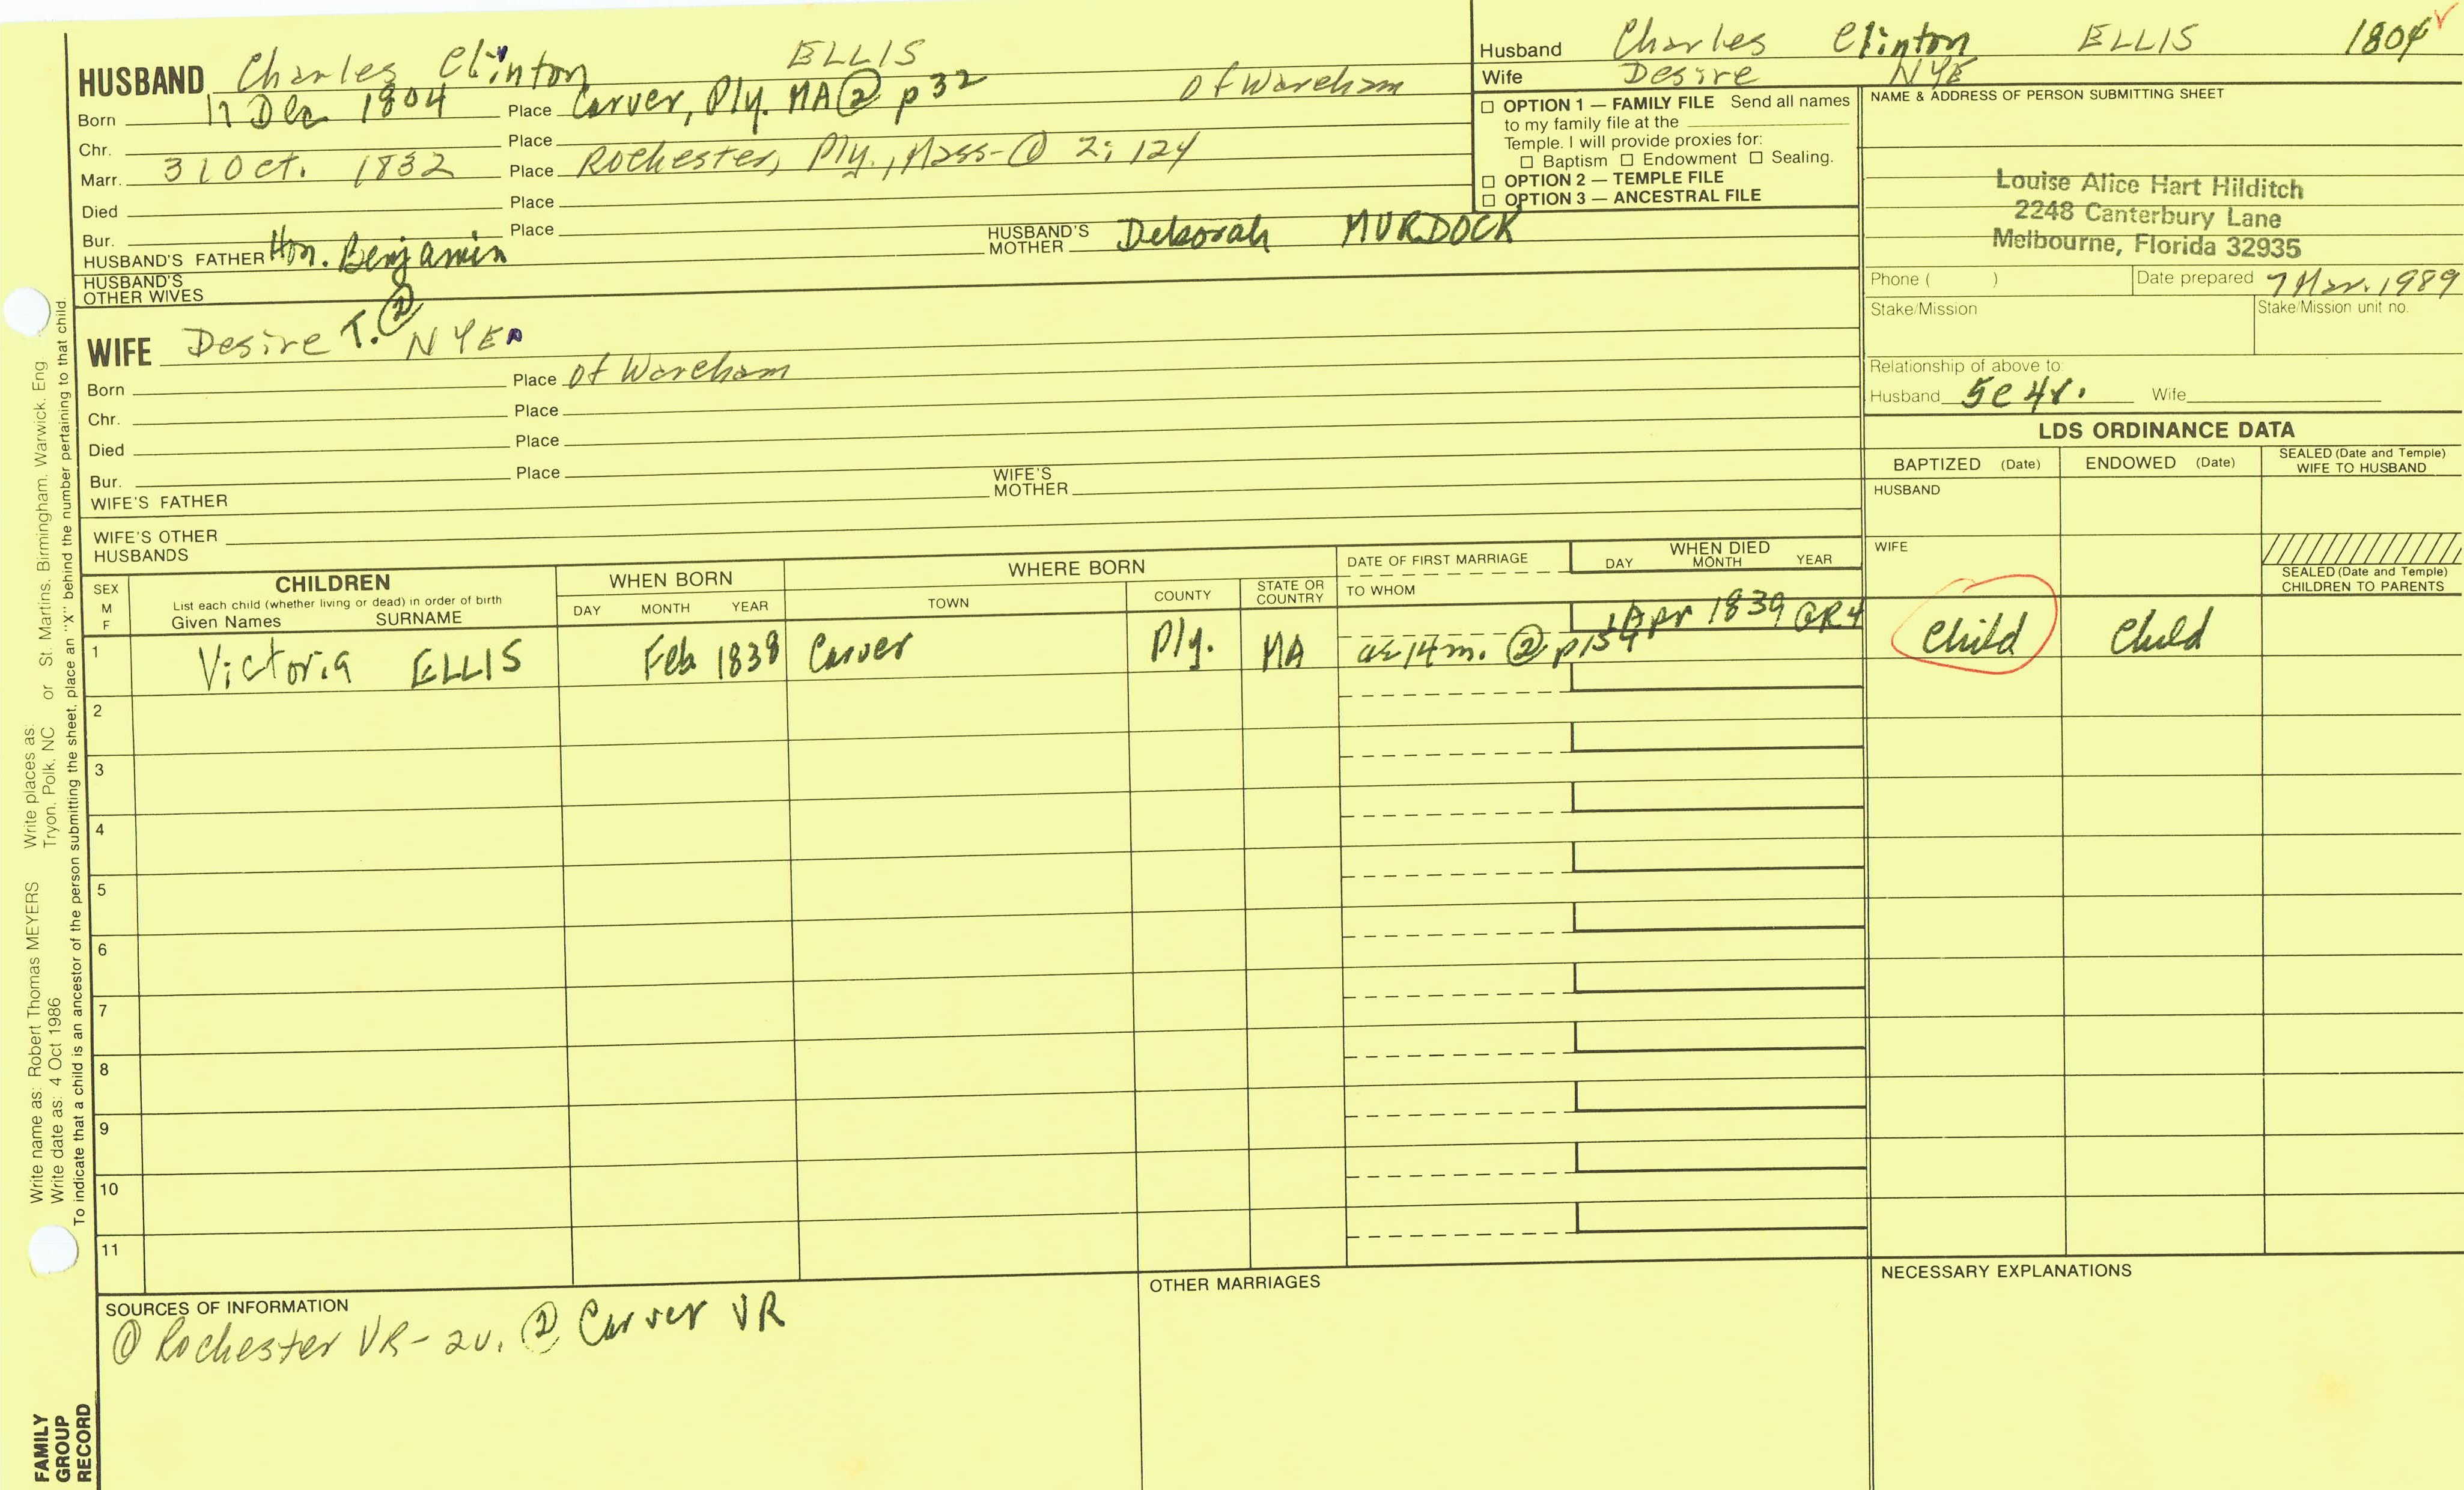 HUSBAND Charles Clinton ELLIS
Born 17 Dec 1804 Place Carver, Ply. MA ② p 32 of Wareham
Chr. Place
Marr. 31 Oct. 1832 Place Rochester, Ply., Mass-① 2: 124
Died Place
Bur. Place
HUSBAND'S FATHER Hon. Benjamin HUSBAND'S MOTHER Deborah MURDOCK
HUSBAND'S OTHER WIVES
WIFE Desire T. ② NYE
Born Place Of Wareham
Chr. Place
Died Place
Bur. Place
WIFE'S FATHER WIFE'S MOTHER
WIFE'S OTHER HUSBANDS
Husband Charles Clinton ELLIS 1804
Wife Desire NYE
☐ OPTION 1 — FAMILY FILE Send all names
to my family file at the
Temple. I will provide proxies for:
☐ Baptism ☐ Endowment ☐ Sealing.
☐ OPTION 2 — TEMPLE FILE
☐ OPTION 3 — ANCESTRAL FILE
NAME & ADDRESS OF PERSON SUBMITTING SHEET
Louise Alice Hart Hilditch
2248 Canterbury Lane
Melbourne, Florida 32935
Phone ( ) Date prepared 7 Mar. 1989
Stake/Mission Stake/Mission unit no.
Relationship of above to:
Husband 5c 4r. Wife
LDS ORDINANCE DATA
BAPTIZED (Date) ENDOWED (Date) SEALED (Date and Temple) WIFE TO HUSBAND
HUSBAND
WIFE
SEALED (Date and Temple)
CHILDREN TO PARENTS
SEX M F
CHILDREN
List each child (whether living or dead) in order of birth
Given Names SURNAME
WHEN BORN
DAY MONTH YEAR
WHERE BORN
TOWN COUNTY STATE OR COUNTRY
DATE OF FIRST MARRIAGE
TO WHOM
WHEN DIED
DAY MONTH YEAR
1 Victoria ELLIS Feb 1838 Carver Ply. MA ae 14 m. ② p154 1 Apr 1839 GR4 Child Child
2
3
4
5
6
7
8
9
10
11
SOURCES OF INFORMATION
① Rochester VR-2v. ② Carver VR
OTHER MARRIAGES
NECESSARY EXPLANATIONS
Write name as: Robert Thomas MEYERS Write places as:
Write date as: 4 Oct 1986 Tryon, Polk, NC or St. Martins, Birmingham, Warwick, Eng
To indicate that a child is an ancestor of the person submitting the sheet, place an "X" behind the number pertaining to that child.
FAMILY
GROUP
RECORD